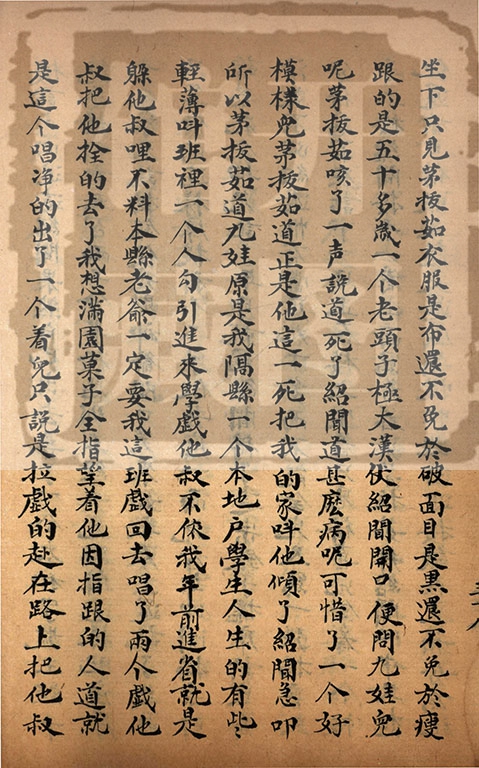 坐下只見茅拔茹衣服是布還不免於破面目是黒還不免於瘦
跟的是五十多歲一个老頭子極大漢仗紹聞開口便問九娃兒
呢茅拔茹咳了一声說道死了紹聞道甚麽病呢可惜了一个好
模樣兒茅拔茹道正是他這一死把我的家呌他傾了紹聞急叩
所以茅拔茹道九娃原是我隔縣一个本地戶學生人生的有些
輕薄呌班裡一个人勾引進來學戲他叔不依我年前進省就是
躱他叔哩不料本縣老爺一定要我這班戲回去唱了兩个戲他
叔把他拴的去了我想滿園菓子全指望着他因指跟的人道就
是這个唱净的出了一个着兒只說是拉戲的赴在路上把他叔